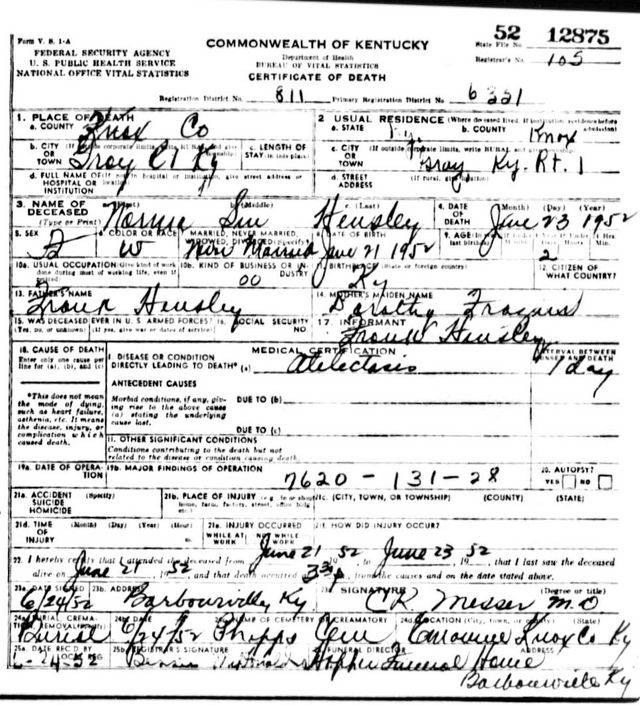 Form V. S. 1-A
FEDERAL SECURITY AGENCY
U. S. PUBLIC HEALTH SERVICE
NATIONAL OFFICE VITAL STATISTICS
COMMONWEALTH OF KENTUCKY
Department of Health
BUREAU OF VITAL STATISTICS
CERTIFICATE OF DEATH
52 12875
State File No.
Registrar's No. 105
Registration District No. 811 Primary Registration District No. 6321
1. PLACE OF DEATH
a. COUNTY Knox Co
2 USUAL RESIDENCE (Where deceased lived. If institution: residence before admission)
a. STATE Ky. b. COUNTY Knox
b. CITY OR TOWN Gray Ky
c. LENGTH OF STAY (in this place)
c. CITY OR TOWN Gray Ky. Rt. 1
d. FULL NAME OF HOSPITAL OR INSTITUTION
d. STREET ADDRESS
3. NAME OF DECEASED (Type or Print) (Middle) c. (Last) Hensley
4. DATE OF DEATH (Month) (Day) (Year) June 23 1952
5. SEX F 6. COLOR OR RACE W 7. MARRIED, NEVER MARRIED, WIDOWED, DIVORCED (Specify) Never Married 8. DATE OF BIRTH June 21 1952 9. AGE 2
10a. USUAL OCCUPATION (Give kind of work done during most of working life, even if retired)
10b. KIND OF BUSINESS OR INDUSTRY 00
11. BIRTHPLACE (State or foreign country) Ky
12. CITIZEN OF WHAT COUNTRY?
13. FATHER'S NAME Frank Hensley
14. MOTHER'S MAIDEN NAME Dorothy
15. WAS DECEASED EVER IN U. S. ARMED FORCES? (Yes, no, or unknown) (If yes, give war or dates of service)
16. SOCIAL SECURITY NO.
17. INFORMANT Frank Hensley
18. CAUSE OF DEATH
Enter only one cause per line for (a), (b), and (c)
MEDICAL CERTIFICATION
INTERVAL BETWEEN ONSET AND DEATH
I. DISEASE OR CONDITION DIRECTLY LEADING TO DEATH* (a) Atelectasis 1 day
*This does not mean the mode of dying, such as heart failure, asthenia, etc. It means the disease, injury, or complication which caused death.
ANTECEDENT CAUSES
Morbid conditions, if any, giving rise to the above cause (a) stating the underlying cause last.
DUE TO (b)
DUE TO (c)
11. OTHER SIGNIFICANT CONDITIONS
Conditions contributing to the death but not related to the disease or condition causing death.
19a. DATE OF OPERATION 19b. MAJOR FINDINGS OF OPERATION
7620 - 131 - 28
20. AUTOPSY?
YES NO
21a. ACCIDENT SUICIDE HOMICIDE (Specify)
21b. PLACE OF INJURY
21c. (CITY, TOWN, OR TOWNSHIP) (COUNTY) (STATE)
21d. TIME OF INJURY (Month) (Day) (Year) (Hour)
21e. INJURY OCCURRED WHILE AT WORK NOT WHILE AT WORK
21f. HOW DID INJURY OCCUR?
22. I hereby certify that I attended the deceased from June 21 1952, to June 23 52, that I last saw the deceased
alive on June 21 1952, and that death occurred from the causes and on the date stated above.
23a. DATE SIGNED 6/24/52 23b. ADDRESS Barbourville, Ky 23c. SIGNATURE (Degree or title) C R Messer M.D
24a. BURIAL, CREMATION, REMOVAL Burial 24b. DATE 6/24/52 24c. NAME OF CEMETERY OR CREAMATORY Phipps Cem 24d. LOCATION (City, town, or county) (State) Knox Co Ky
25a. DATE REC'D BY LOCAL REG 6-24-52 25b. REGISTRAR'S SIGNATURE FUNERAL DIRECTOR Hopper Funeral Home
Barbourville Ky